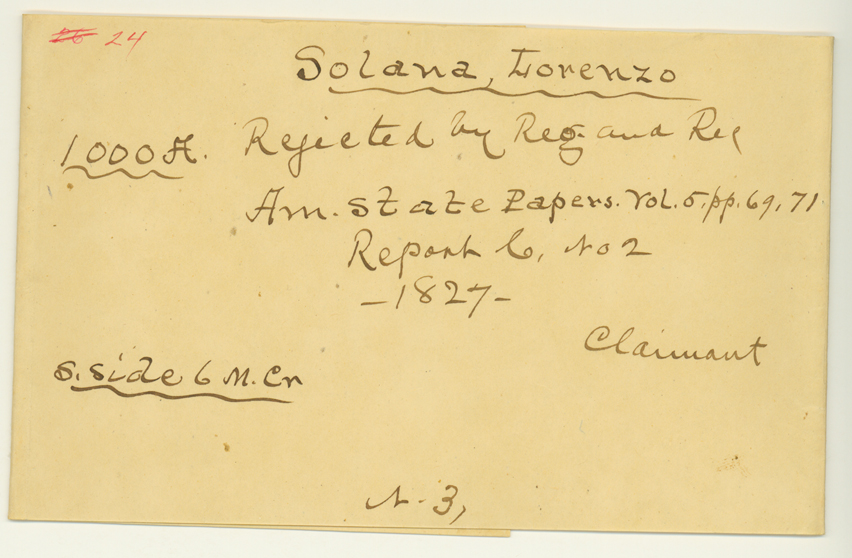 26 24
Solana, Lorenzo
1000 A. Rejected by Reg. and Rec
Am. State Papers. Vol. 5, pp. 69, 71
Report 6, No 2
-1827-
Claimant
S. Side 6 M. Cr
N- 3,